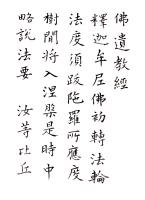 佛遺教經
釋迦牟尼佛初轉法輪
法度須跋陀羅所應度
樹間將入涅槃是時中
略說法要 汝等比丘